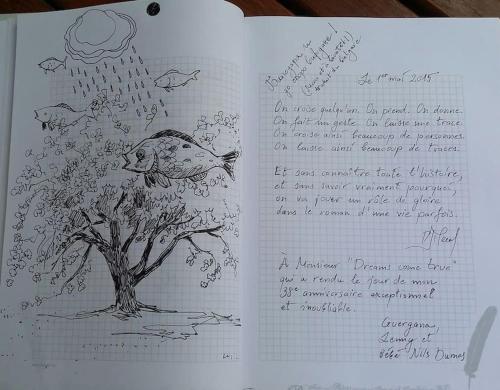 Le 1er mai 2015
On croise quelqu'un. On prend. On donne.
On fait un geste. On laisse une trace.
On croise ainsi beaucoup de personnes.
On laisse ainsi beaucoup de traces.
Et sans connaître toute l'histoire,
et sans savoir vraiment pourquoi,
on va jouer un rôle de gloire
dans le roman d'une vie parfois.
À Monsieur "Dreams come true"
qui a rendu le jour de mon
38e anniversaire exceptionnel
et inoubliable.
Guergana,
Jenny et
Bébé Nils Dumas